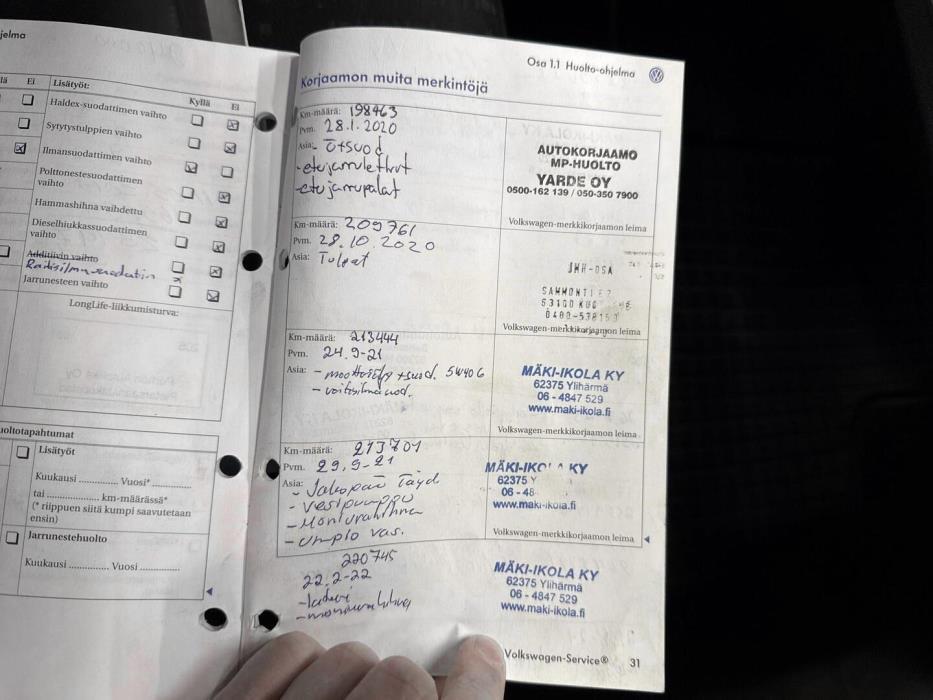 jelma
Ei Lisätyöt: Kyllä Ei
Haldex-suodattimen vaihto
Sytytystulppien vaihto
Ilmansuodattimen vaihto
Polttonestesuodattimen
vaihto
Hammashihna vaihdettu
Dieselhiukkassuodattimen
vaihto
Additiivin vaihto
Jarrunesteen vaihto
LongLife-liikkumisturva:
uoltotapahtumat
Lisätyöt
Kuukausi .............. Vuosi* ..............
tai .................... km-määrässä*
(* riippuen siitä kumpi saavutetaan
ensin)
Jarrunestehuolto
Kuukausi .............. Vuosi ..............
Osa 1.1 Huolto-ohjelma
Korjaamon muita merkintöjä
Km-määrä: 198463
Pvm. 28.1.2020
Asia: - Ö+suod
- etujarruletkut
- etujarrupalat
AUTOKORJAAMO
MP-HUOLTO
YARDE OY
0500-162 139 / 050-350 7900
Volkswagen-merkkikorjaamon leima
Km-määrä: 209761
Pvm. 28.10.2020
Asia: Tulpat
JMH-OSA
Volkswagen-merkkikorjaamon leima
Km-määrä: 213444
Pvm. 24.9-21
Asia: - moottoriöljy +suod. 5W40 G
- voitesilmäsuod.
MÄKI-IKOLA KY
62375 Ylihärmä
06 - 4847 529
www.maki-ikola.fi
Volkswagen-merkkikorjaamon leima
Km-määrä: 213701
Pvm. 29.9-21
Asia: - Jakopää Täyd
- vesipumppu
- Moniurahihna
MÄKI-IKO KY
62375 Y
06 - 48
www.maki-ikola.fi
Volkswagen-merkkikorjaamon leima
220745
22.2-22
- laturi
- moniurahihna
MÄKI-IKOLA KY
62375 Ylihärmä
06 - 4847 529
www.maki-ikola.fi
Volkswagen-Service® 31